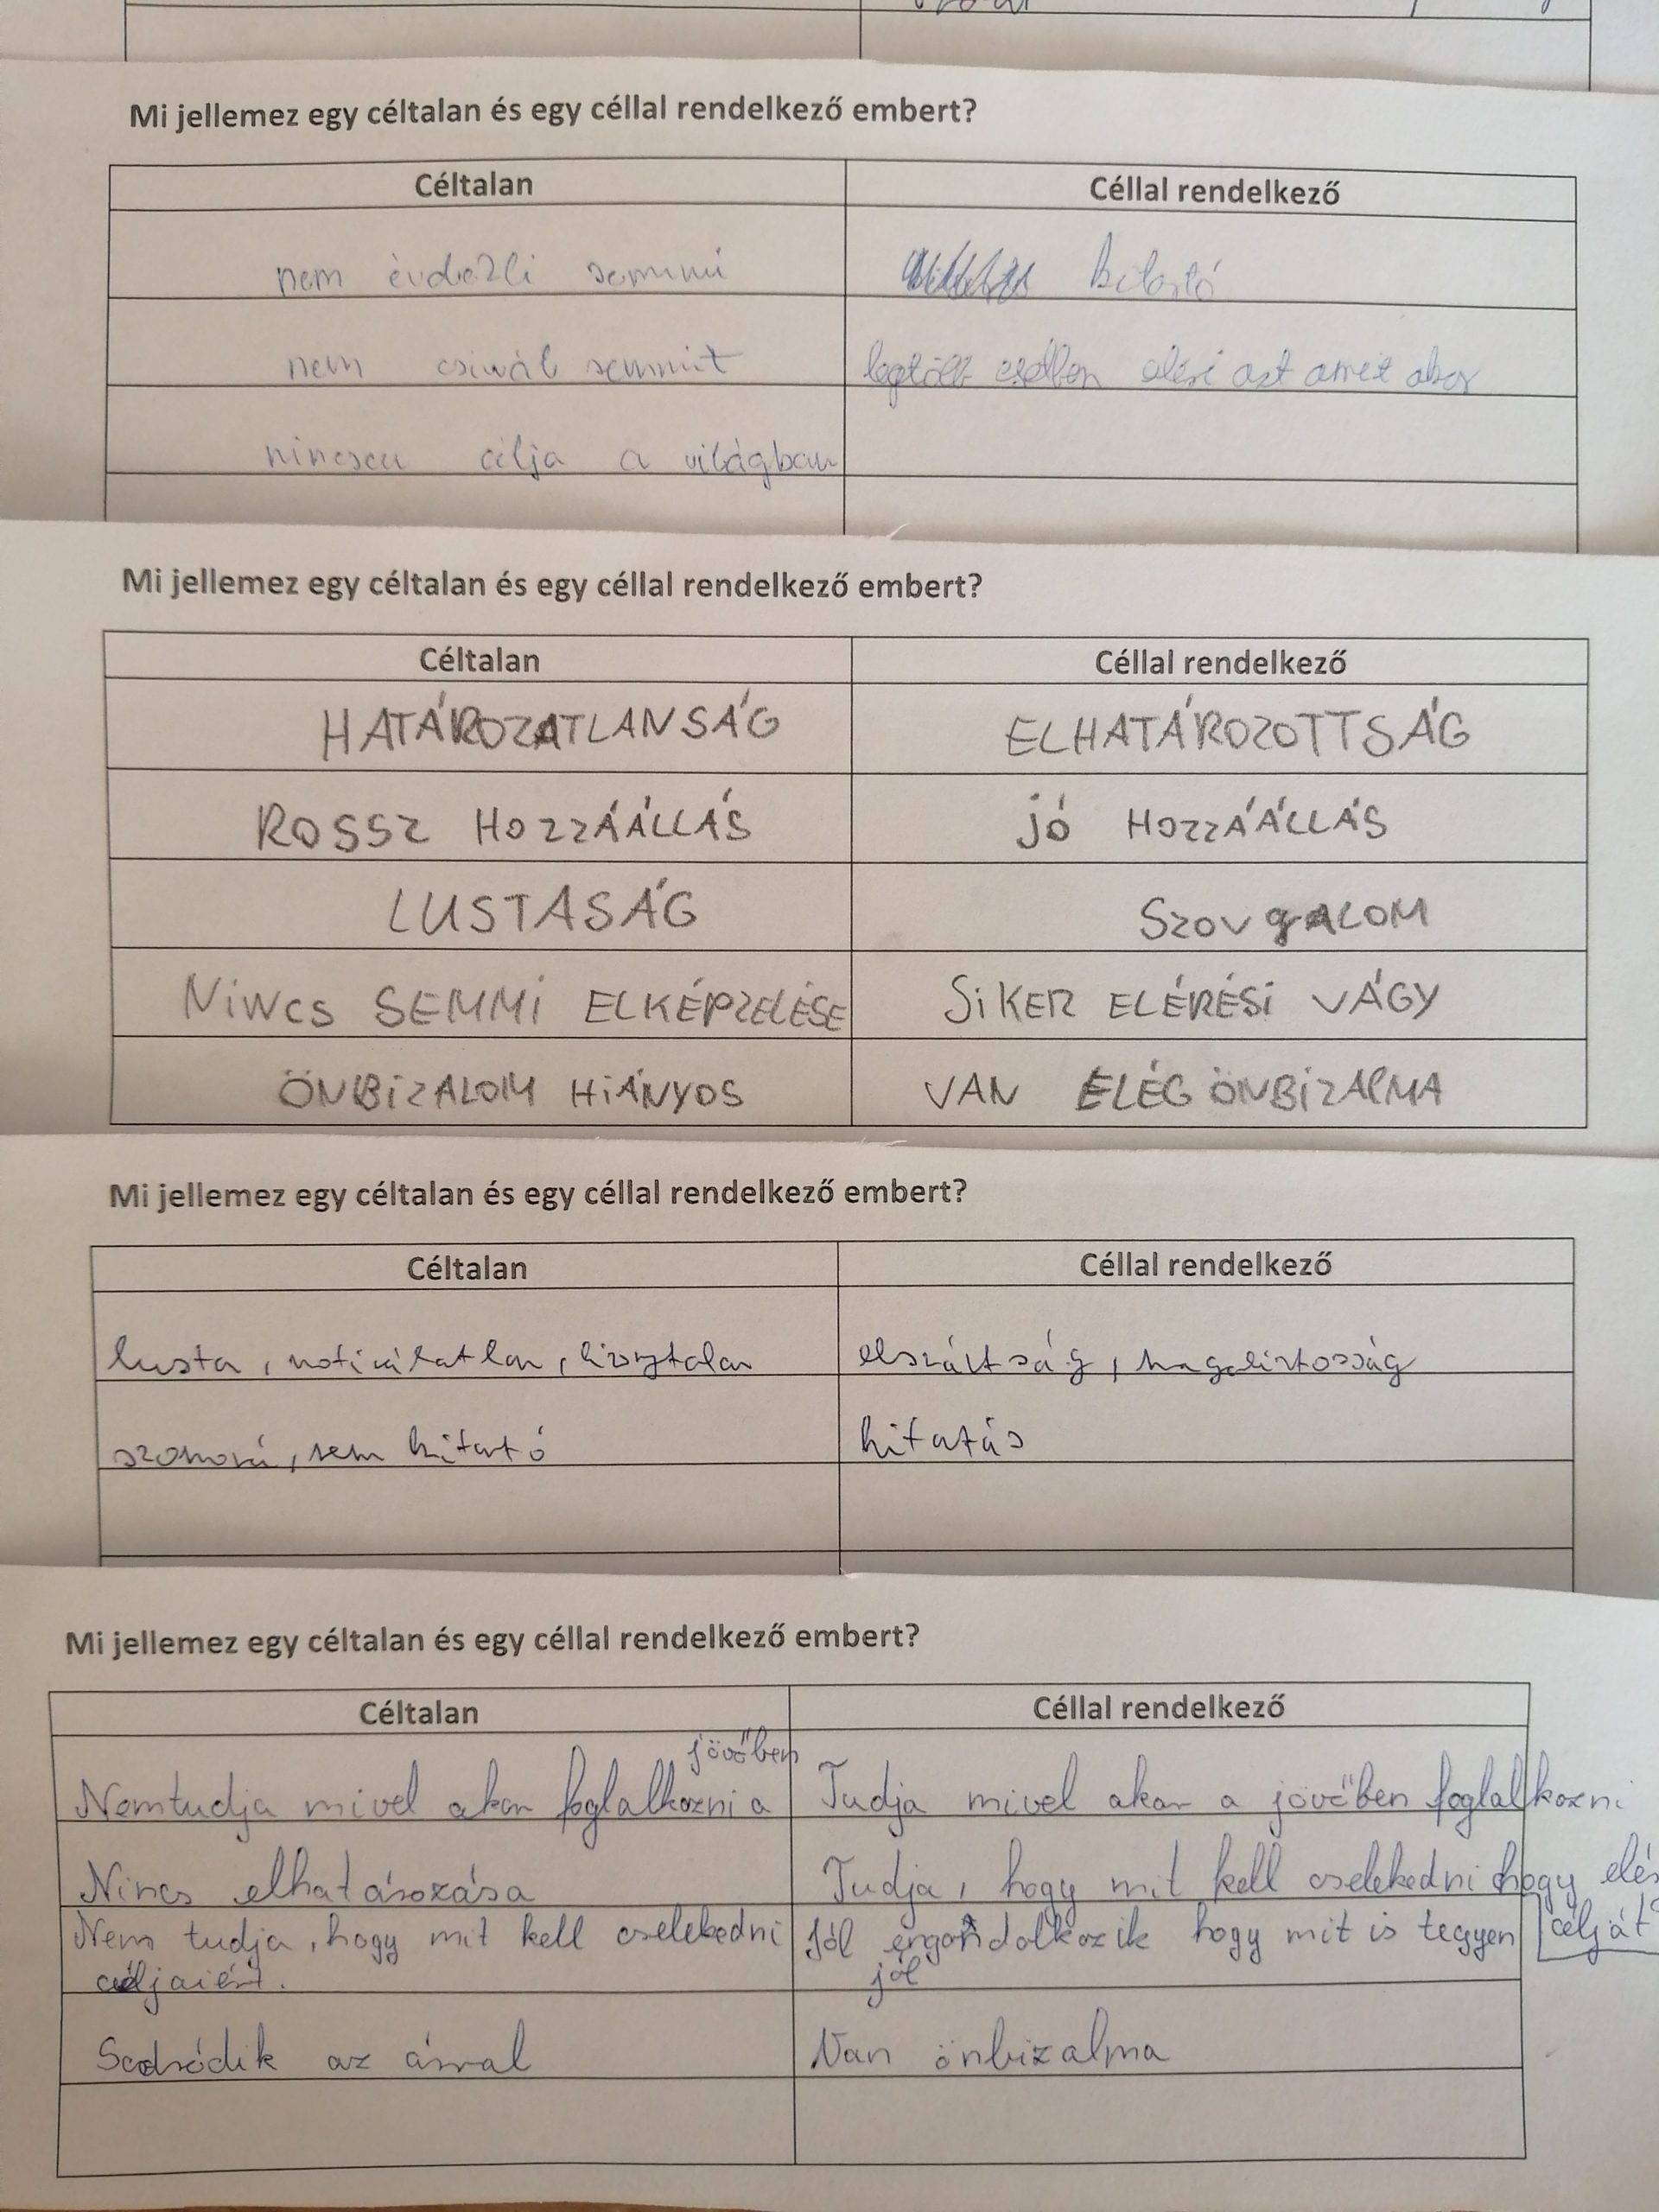 Mi jellemez egy céltalan és egy céllal rendelkező embert?
Céltalan Céllal rendelkező
nem érdekli semmi kitartó
nem csinál semmit legtöbb esetben eléri azt amit akar
nincsen célja a világban
Mi jellemez egy céltalan és egy céllal rendelkező embert?
Céltalan Céllal rendelkező
HATÁROZATLANSÁG ELHATÁROZOTTSÁG
ROSSZ HOZZÁÁLLÁS jó HOZZÁÁLLÁS
LUSTASÁG SZORgALOM
NiNCS SEMMi ELKÉPZELÉSE SiKER ELÉRÉSi VÁGY
ÖNBiZALOM HiÁNYOS VAN ELÉG ÖNBiZALMA
Mi jellemez egy céltalan és egy céllal rendelkező embert?
Céltalan Céllal rendelkező
lusta, motiválatlan, bizonytalan elszántság, magabiztosság
szomorú, nem kitartó kitartás
Mi jellemez egy céltalan és egy céllal rendelkező embert?
Céltalan Céllal rendelkező
jövőben
Nemtudja mivel akar foglalkozni a Tudja mivel akar a jövőben foglalkozni
Nincs elhatározása Tudja, hogy mit kell cselekedni hogy
Nem tudja, hogy mit kell cselekedni Jól hogy mit is tegyen célját
céljaiért. jól
Sodródik az árral Van önbizalma